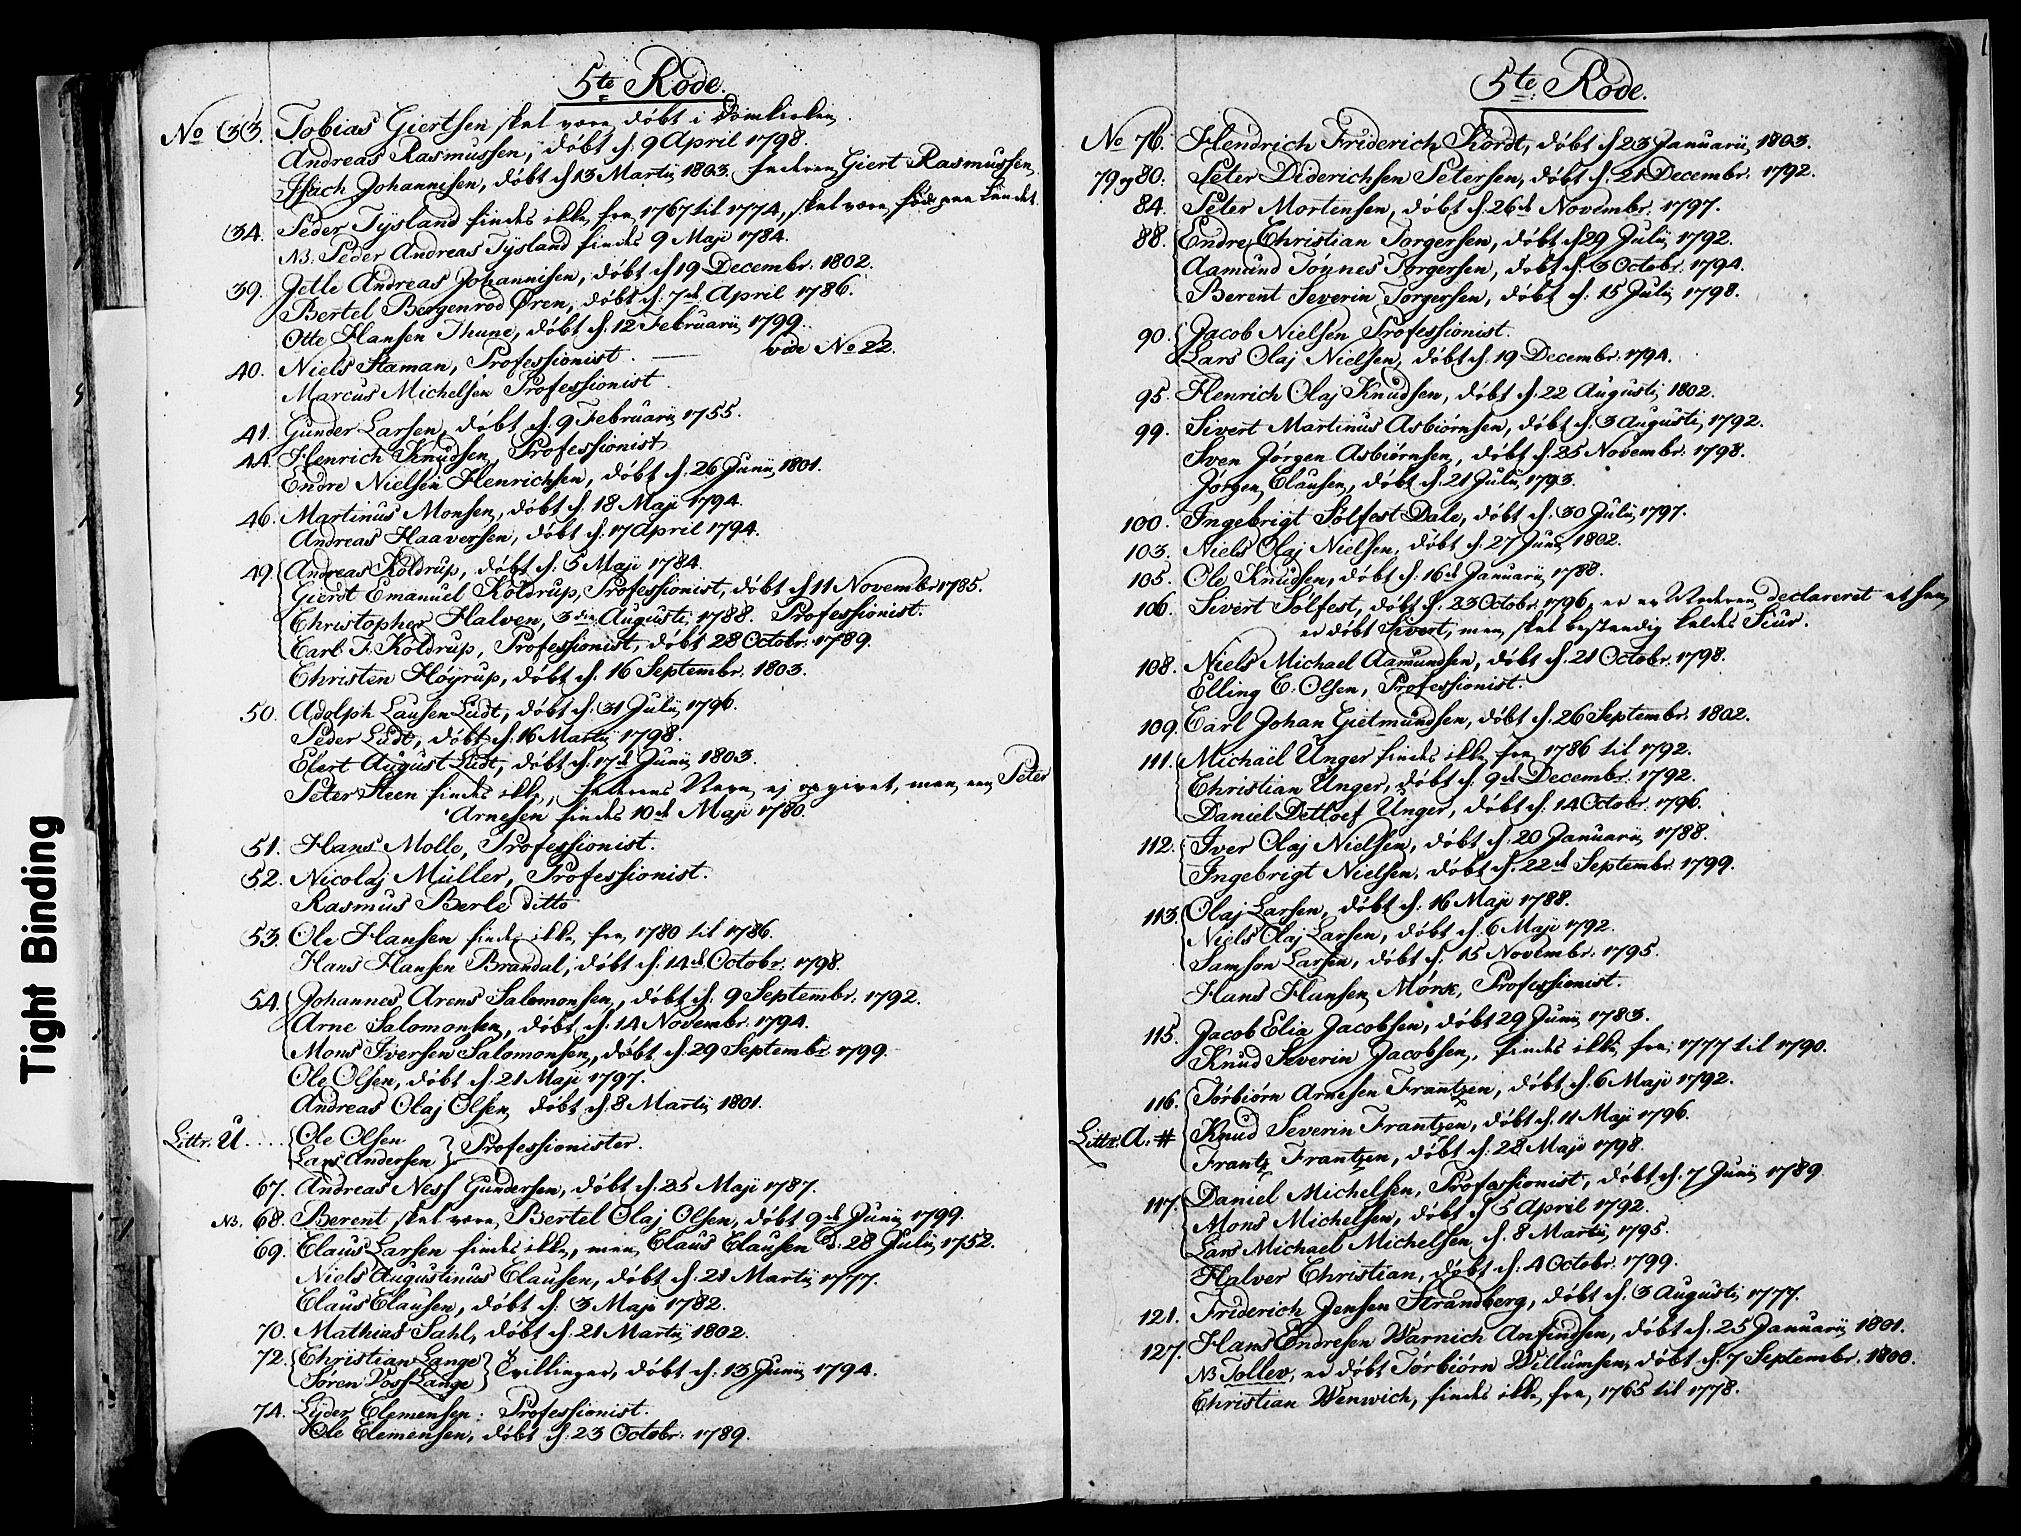 5te Rode.
No 33. Tobias Giertsen skal være døbt i Domkirken.
Andreas Rasmussen, døbt d: 9 April 1798.
Isach Johannesen, døbt d 13 Martij 1803. Faderen Giert Rasmussen.
34. Peder Tysland findes ikke fra 1767 til 1774, skal være født paa Landet.
NB. Peder Andreas Tysland findes 9 Maji 1784.
39. Jetle Andreas Johannesen, døbt d 19 Decembr. 1802.
Bertel Bergenrod Øren, døbt d: 7de April 1786.
Otte Hansen Thune, døbt d. 12 Februarij 1799.
40. Niels Staman, Professionist. — vide No 22.
Marcus Michelsen Professionist.
41. Gunder Larsen, døbt d. 9 Februarij 1755.
44. Henrich Knudsen, Professionist
Endre Nielsen Henrichsen, døbt d. 26 Junij 1801.
46. Martinus Monsen, døbt d. 18 Maji 1794.
Andreas Haaversen, døbt d. 17 April 1794.
49. Andreas Koldrup, døbt d: 5 Maji 1784.
Gierdt Emanuel Koldrup, Professionist, døbt d 11 Novembr 1785.
Christopher Halven, 3die Augusti 1788. Professionist.
Carl F. Koldrup, Professionist, døbt 28 Octobr. 1789.
Christen Høyrup, døbt d. 16 Septembr. 1803.
50. Adolph Lausen Lüdt, døbt d: 31 Julij 1796.
Peder Lüdt, døbt d: 16 Martij 1798.
Elert August Lüdt, døbt d: 17de Junij 1803.
Peter Steen findes ikke, Faderens Navn ej opgivet, men en Peter
Arnesen findes 10de Maji 1780.
51. Hans Molle, Professionist.
52. Nicolaj Müller, Professionist.
Rasmus Berle ditto
53. Ole Hansen findes ikke fra 1780 til 1786.
Hans Hansen Brandal, døbt d: 14de Octobr. 1798.
54. Johannes Arens Salomonsen, døbt d: 9 Septembr. 1792.
Arne Salomonsen, døbt d: 14 Novembr. 1794.
Mons Iversen Salomonsen, døbt d: 29 Septembr. 1799.
Ole Olsen, døbt d: 21 Maji 1797.
Andreas Olaj Olsen døbt d 8 Martij 1801.
Littr: U. .... Ole Olsen
Lars Andersen } Professionister.
67. Andreas Ness Gundersen, døbt d: 25 Maji 1787.
NB. 68. Berent skal være Bertel Olaj Olsen, døbt 9de Junij 1799.
69. Claus Larsen findes ikke, men Claus Clausen d. 28 Julij 1752.
Niels Augustinus Clausen, døbt d: 21 Martij 1777.
Claus Clausen, døbt d: 3 Maji 1782.
70. Mathias Sahl, døbt d. 21 Martij 1802.
72. Christian Lange
Søren Voss Lange } Tvillinger, døbt d: 13 Junij 1794.
74. Lyder Clemensen: Professionist.
Ole Clemensen, døbt d: 23 Octobr: 1789.
5te Rode.
No 76. Hendrich Friderich Kordt, døbt d 23 Januarij 1803.
79 og 80. Peter Diderichsen Petersen, døbt d: 21 Decembr. 1792.
84. Peter Mortensen, døbt d. 26de Novembr. 1797.
88. Endre Christian Torgersen, døbt d 29 Julij 1792.
Aamund Tönnes Torgersen, døbt d: 3 Octobr. 1794.
Berent Severin Torgersen, døbt d: 15 Julij 1798.
90. Jacob Nielsen Professionist.
Lars Olaj Nielsen, døbt d: 19 Decembr. 1794.
95. Henrich Olaj Knudsen, døbt d: 22 Augusti 1802.
99. Sivert Martinus Asbiørnsen, døbt d: 3 Augusti 1792.
Sven Jørgen Asbiørnsen, døbt d: 25 Novembr. 1798.
Jørgen Clausen, døbt d. 21 Julij 1793.
100. Ingebrigt Solfest Dale, døbt d: 30 Julij 1797.
103. Niels Olaj Nielsen, døbt d: 27 Junij 1802.
105. Ole Knudsen, døbt d: 16de Januarij 1788.
106. Sivert Solfest, døbt d. 23 Octobr. 1796, er av Moderen declareret at han
er døbt Sivert, men skal bestandig kaldes Siur.
108. Niels Michael Aamundsen, døbt d. 21 Octobr. 1798.
Elling E. Olsen, Professionist.
109. Carl Johan Gietmundsen, døbt d. 26 Septembr. 1802.
111. Michaël Unger findes ikke fra 1786 til 1792.
Christian Unger, døbt d: 9de Decembr. 1792.
Daniel Detloef Unger, døbt d: 14 Octobr. 1796.
112. Iver Olaj Nielsen, døbt d. 20 Januarij 1788.
Ingebrigt Nielsen, døbt d. 22de Septembr. 1799.
113. Olaj Larsen, døbt d: 16 Maji 1788.
Niels Olaj Larsen, døbt d: 6 Maji 1792.
Samson Larsen, døbt d. 15 Novembr. 1795.
Hans Hansen Mørk, Professionist.
115. Jacob Elia Jacobsen, døbt 29 Junij 1783.
Knud Severin Jacobsen, findes ikke fra 1777 til 1790.
116. Torbiørn Arnesen Frantzen, døbt d. 6 Maji 1792.
Littr: A. # Knud Severin Frantzen, døbt d: 11 Maji 1796.
Frantz Frantzen, døbt d: 28 Maji 1798.
117. Daniel Michelsen, Professionist, døbt d. 7 Junij 1789.
Mons Michelsen, døbt d 5 April 1792.
Lars Michael Michelsen d. 8 Martij 1795.
Halver Christian, døbt d. 4 Octobr. 1799.
121. Friderich Jensen Strandberg, døbt d. 3 Augusti 1777.
127. Hans Endresen Warnich Anfindsen, døbt d. 25 Januarij 1801.
NB Tollev, er døbt Torbiørn Willumsen, døbt d: 7 Septembr. 1800.
Christian Wenwich, findes ikke fra 1765 til 1778.
Tight Binding